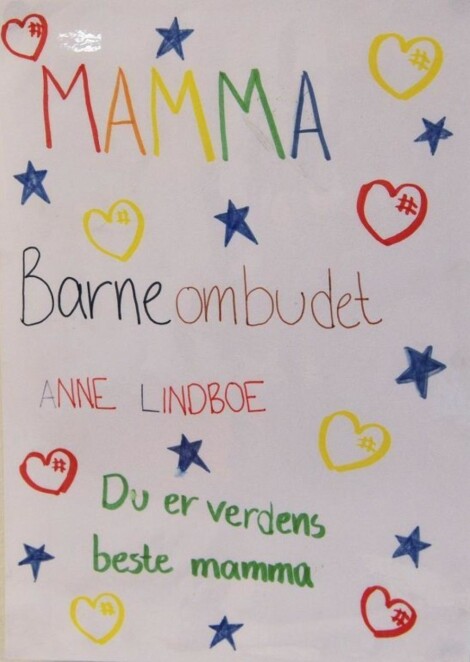 MAMMA
Barneombudet
ANNE LINDBOE
Du er verdens
beste mamma